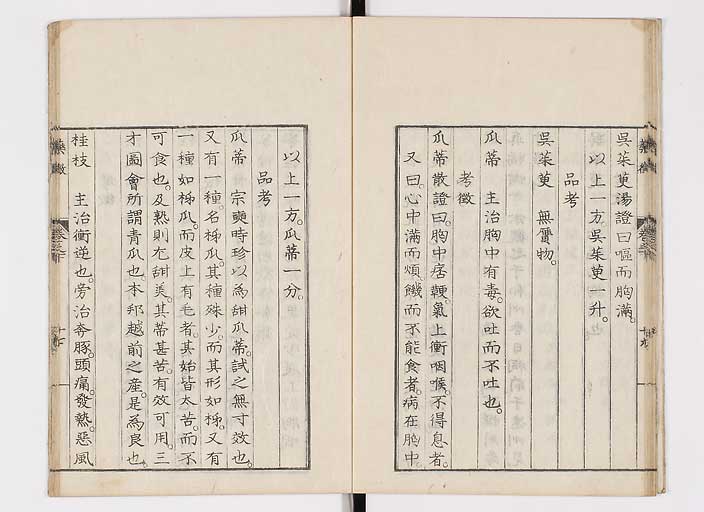 吳茱萸湯證曰嘔而胸滿。
以上一方吳茱萸一升。
品考
吳茱萸 無贗物。
瓜蒂 主治胸中有毒。欲吐而不吐也。
考徵
瓜蒂散證曰。胸中痞鞕。氣上衝咽喉。不得息者。
又曰。心中滿而煩。饑而不能食者。病在胸中。
以上一方。瓜蒂一分。
品考
瓜蒂 宗奭時珍以為甜瓜蒂。試之無寸效也。
又有一種。名梯瓜。其種殊少。而其形如梯。又有
一種如梯瓜。而皮上有毛者。其始皆太苦。而不
可食也。及熟則尤甜美。其蒂甚苦。有效可用。三
才圖會所謂青瓜也。本邦越前之產。是為良也。
桂枝 主治衝逆也。旁治奔豚。頭痛。發熱。惡風
藥徵